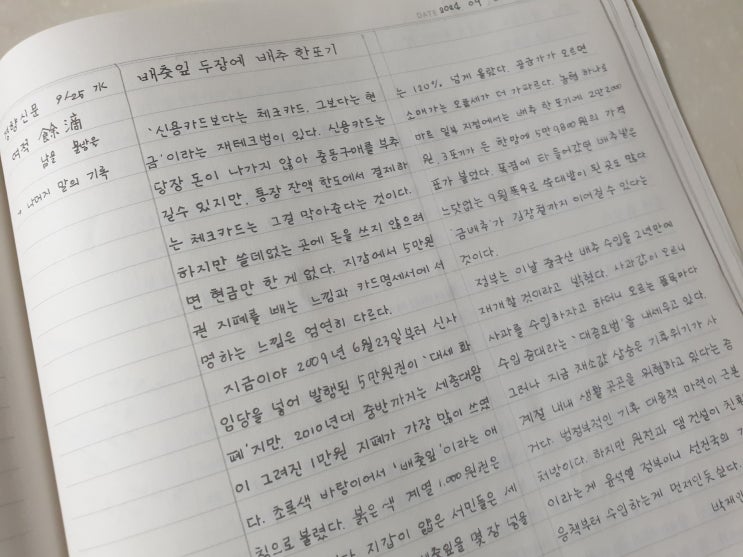 DATE 2024 09
경향신문 9/25 水
여적 餘滴
남을 물방울
→ 나머지 말의 기록
배춧잎 두장에 배추 한포기
'신용카드보다는 체크카드. 그보다는 현
금'이라는 재테크법이 있다. 신용카드는
당장 돈이 나가지 않아 충동구매를 부추
길수 있지만, 통장 잔액 한도에서 결제하
는 체크카드는 그걸 막아준다는 것이다.
하지만 쓸데없는 곳에 돈을 쓰지 않으려
면 현금만 한 게 없다. 지갑에서 5만원
권 지폐를 빼는 느낌과 카드명세서에 서
명하는 느낌은 엄연히 다르다.
지금이야 2009년 6월 23일부터 신사
임당을 넣어 발행된 5만원권이 '대세 화
폐'지만, 2010년대 중반까지는 세종대왕
이 그려진 1만원 지폐가 가장 많이 쓰였
다. 초록색 바탕이어서 '배춧잎'이라는 애
칭으로 불렸다. 붉은색 계열 1,000원권은
지갑이 얇은 서민들은 세
배춧잎을 몇 장 넣을
는 120% 넘게 올랐다. 공급가가 오르면
소매가는 오름세가 더 가파르다. 농협 하나로
마트 일부 지점에서는 배추 한포기에 2만2000
원, 3포기가 든 한망에 5만9800원의 가격
표가 붙었다. 폭염에 타 들어갔던 배추밭은
느닷없는 9월폭우로 쑥대밭이 된 곳도 많다
'금배추'가 김장철까지 이어질수 있다는
것이다.
정부는 이날 중국산 배추 수입을 2년만에
재개할 것이라고 밝혔다. 사과값이 오르니
사과를 수입하자고 하더니 오르는 품목마다
수입 증대라는 '대증요법'을 내세우고 있다.
그러나 지금 채소값 상승은 기후위기가 사
계절 내내 생활 곳곳을 위협하고 있다는 증
거다. 범정부적인 기후 대응책 마련이 근본
처방이다. 하지만 원전과 댐 건설이 친환
이라는게 윤석열 정부이니 선진국의 기
응책부터 수입하는게 먼저인듯 싶다.